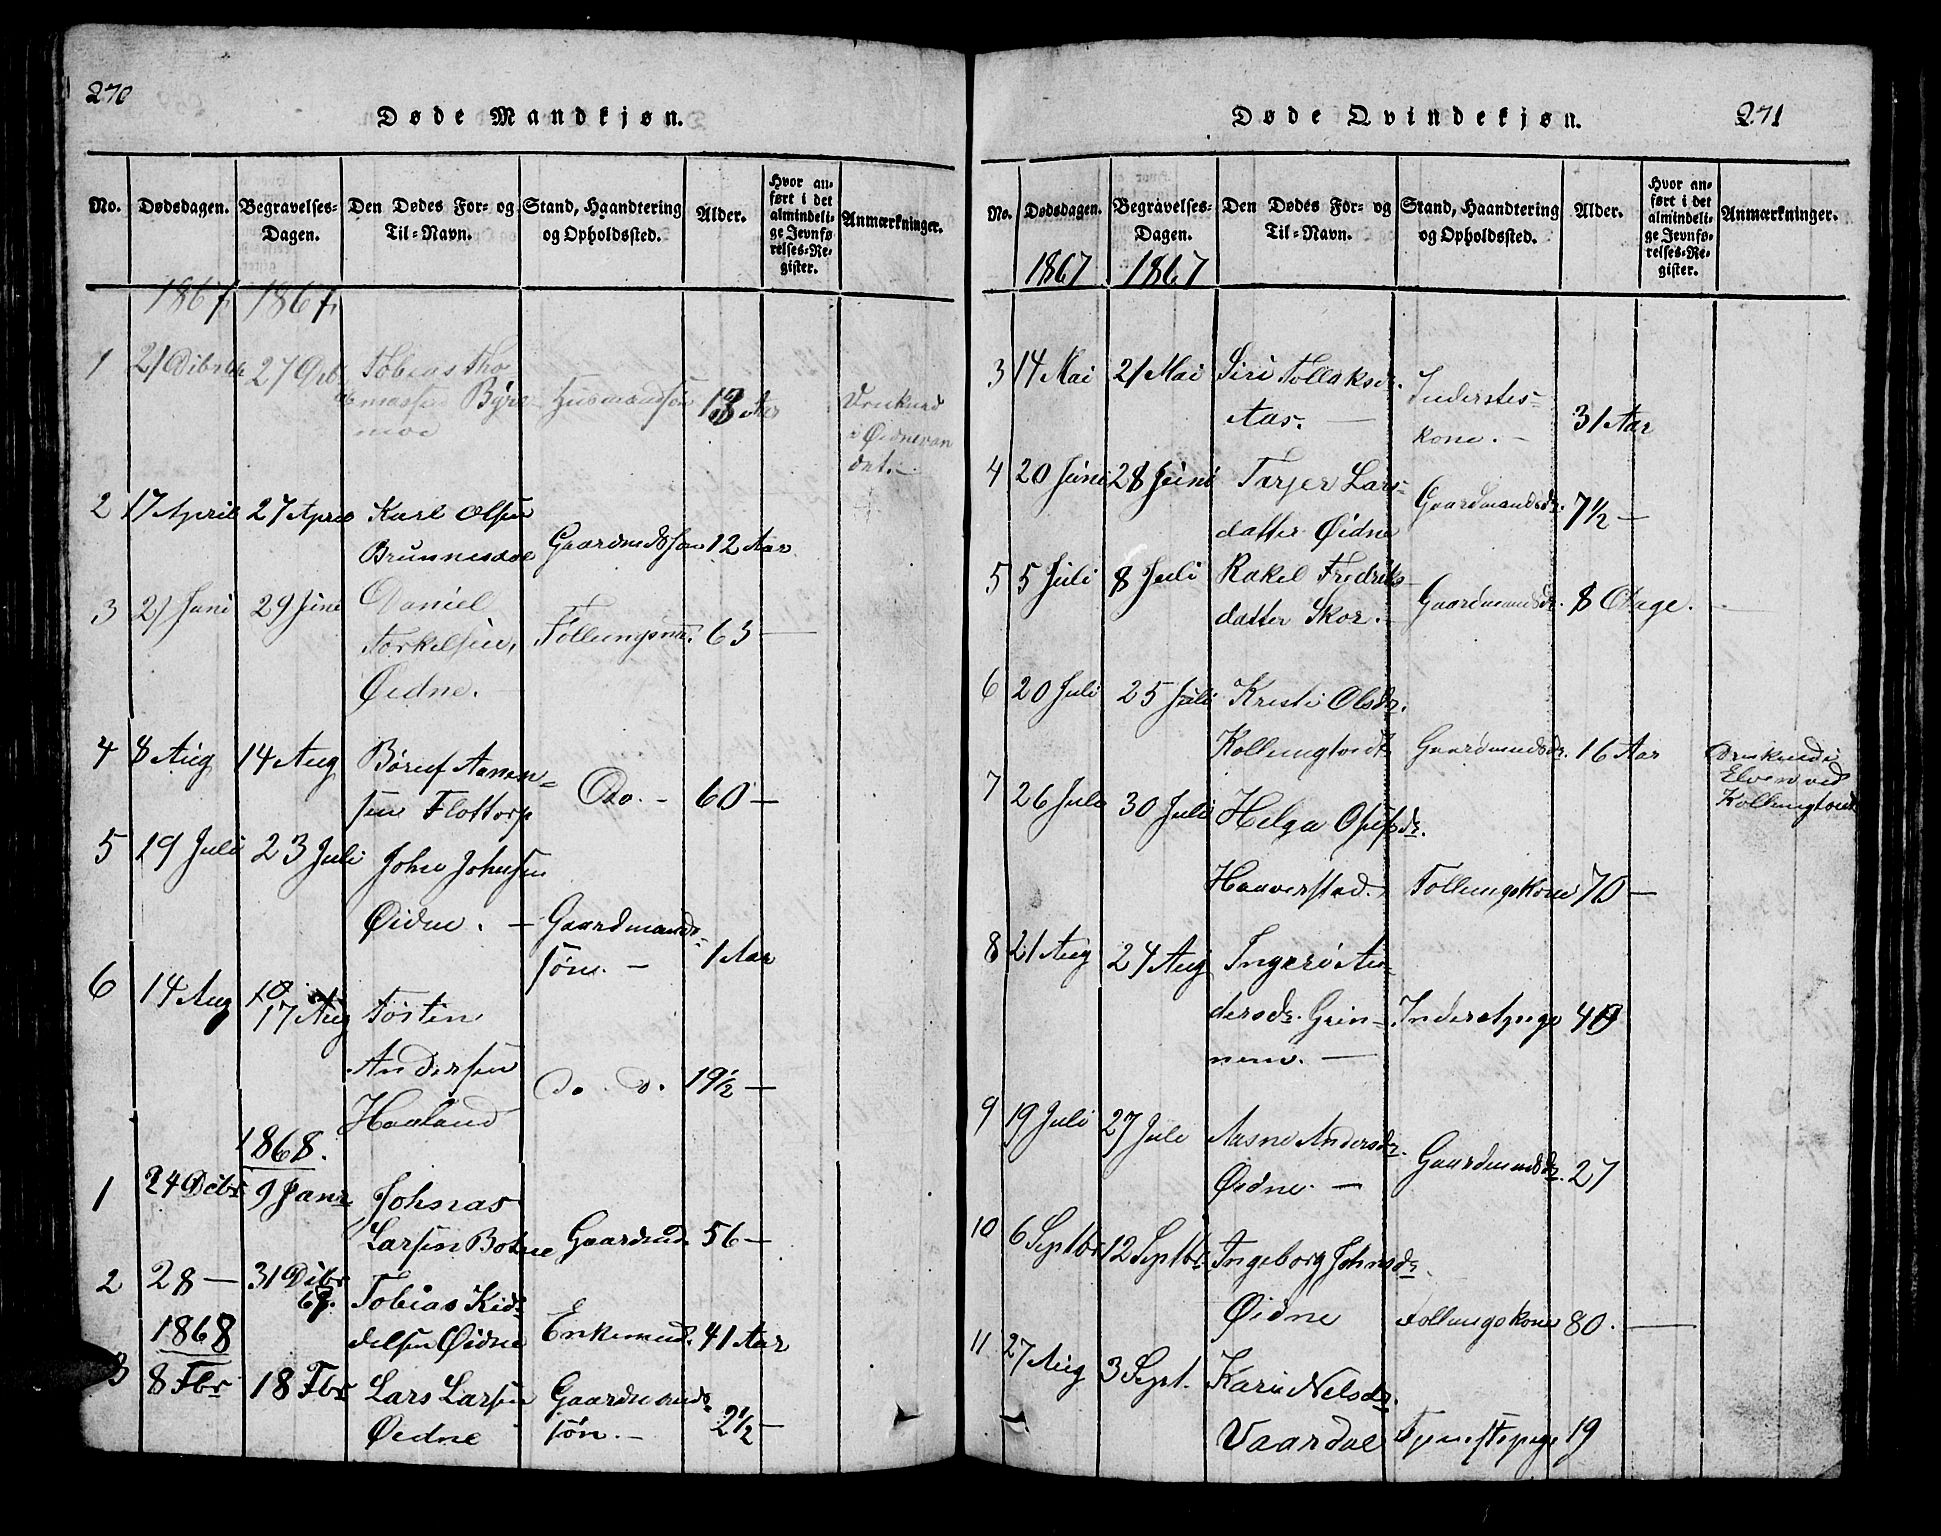 270
Døde Mandkjøn.
No. Dødsdagen. Begravelses- Dagen. Den Dødes For- og Til-Navn. Stand, Haandtering og Opholdssted. Alder. Hvor an- ført i det almindeli- ge Jevnfø- relses-Re- gister. Anmærkninger.
1867 1867
1 21 Dcbr 27 Dcb. Tobias Tho
massen Byre Husmandsøn 13 Aar Druknet
moe i Øidnevan
det.
2 17 April 27 April Karl Olsen
Gaardmdssøn 12 Aar
3 21 Juni 29 Juni Daniel
Torkelsen, Follungsm. 63 —
Øidne.
4 8 Aug 14 Aug Børuf Aanen-
sen Flottorp Do. - 60 —
5 19 Juli 23 Juli John Johnsen
Øidne. — Gaardmands-
søn. — 1 Aar
6 14 Aug 17 Aug Tosten
Andersen do. do. 19½ —
Haaland
1868.
1 24 Dcbr 9 Janr Johnas
Larsen Botne Gaardmd. 56 —
2 28 — 31 Dcbr 67. Tobias Kid-
delsen Øidne Enkemd. 41 Aar
1868
3 8 Fbr 18 Fbr Lars Larsen Gaardmands-
Øidne søn. — 2½ —
Døde Qvindekjøn.
271
No. Dødsdagen. Begravelses- Dagen. Den Dødes For- og Til-Navn. Stand, Haandtering og Opholdssted. Alder. Hvor an- ført i det almindeli- ge Jevnfø- relses-Re- gister. Anmærkninger.
1867 1867
3 14 Mai 21 Mai Siri Tollaksdr. Inderstes-
Aas. — kone. — 31 Aar
4 20 Juni 28 Juni Terjer Lars-
datter Øidne Gaardmandsdr. 7½ —
5 5 Juli 8 Juli Rakel Fredriks-
datter Skor. — Gaardmandsdr. 8 Dage.
6 20 Juli 25 Juli Kristi Olsdr.
Kollungtvedt Gaardmandsdr. 16 Aar Druknede i
Elven ved
Kollungtvedt
7 26 Juli 30 Juli Helga
Haaverstad. Follungskone 70 —
8 21 Aug 24 Aug Ingerø An-
dersdr. Grin-
nem. —
9 19 Juli 27 Juli Aasne Andersdr.
Øidne. — Gaardmandsdr. 27
10 6 Septbr 12 Septbr. Ingeborg Johnsdr.
Øidne Follungskone 80. —
11 27 Aug 3 Sept. Kari Nelsdr.
Vaardal Tjenestepige 19